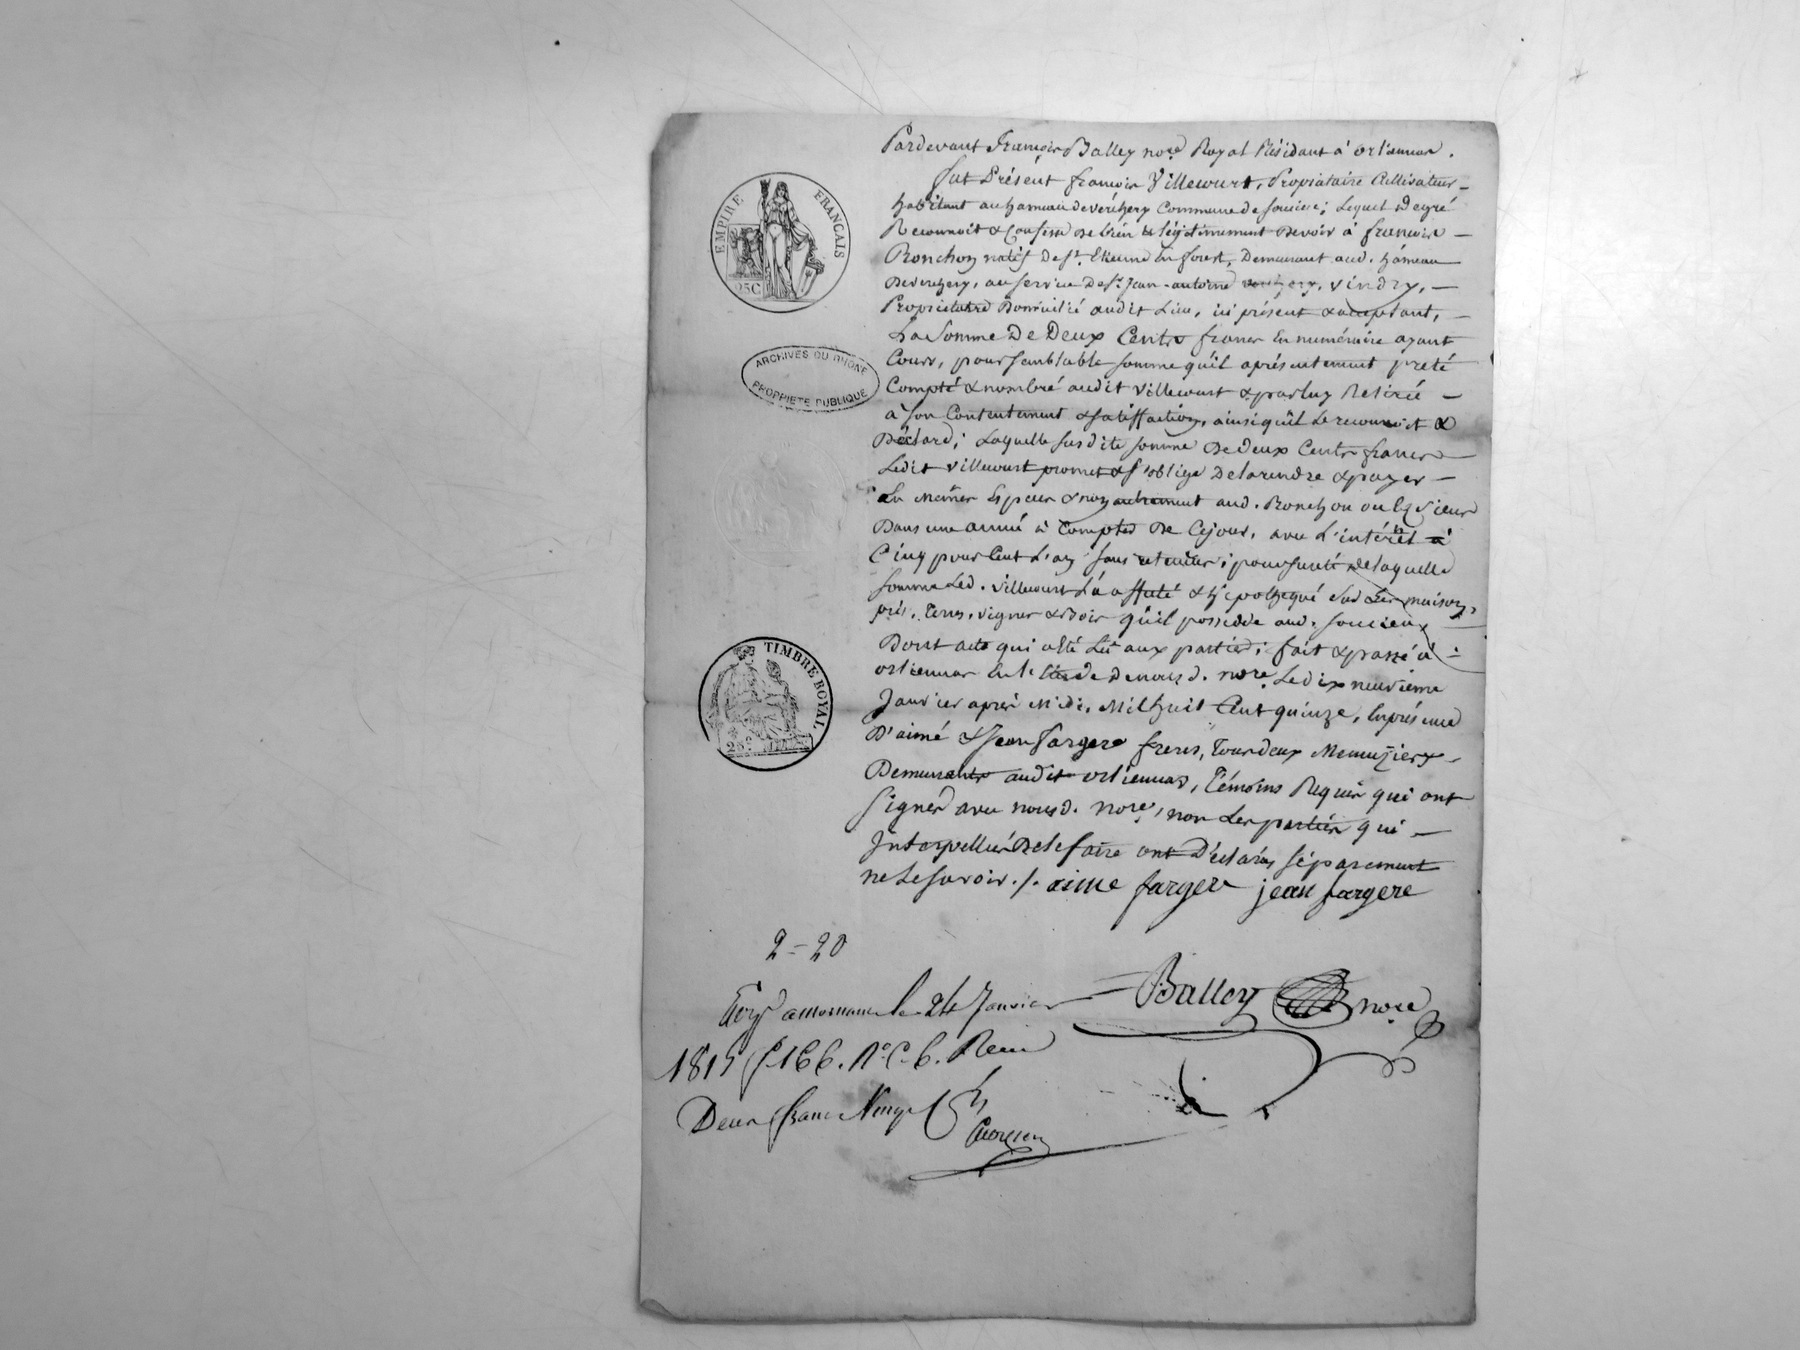 Pardevant François Balley nore Royal Résidant à orlienas.
fut Présent françois Villecourt, Propriétaire Cultivateur
habitant au hameau de verchery Commune de soucieu; Lequel de gré
Reconnoit & Confesse de bien & légitimement devoir à françois
Ronchon natif de St. Etienne en forest, Demeurant aud. hameau
De verchery, au service de Sr. Jean-antoine vindry,
Propriétaire Domicilié audit Lieu, ici présent & acceptant,
La Somme De Deux Cents francs En numéraire ayant
Cours, pour semblable somme qu'il a présentement preté
Compté & nombré audit Villecourt & par luy Retirée
à son Contentement & satisffaction, ainsi qu'il Le reconnoit &
Déclare; Laquelle susdite somme De Deux Cents francs
Ledit Villecourt promet & s'oblige De la rendre & payer
En mêmes Espèces & non autrement aud. Ronchon ou les siens
Dans une année à Compter De Cejour, avec L'intérêt à
Cinq pour Cent L'an sans retenue; pour sureté de laquelle
somme Led. Villecourt L'a affecté & hypothequé sur ses maison,
prés, Terres, vignes & bois qu'il possède aud. soucieu,
Dont acte qui a été Lu aux parties; fait & passé à
orlienas En l'étude de nousd. nore. Le dix neuvieme
Janvier après Midi, Mil huit Cent quinze, En présence
D'aimé & Jean fargere freres, Tous deux Menuziers
Demeurants audit orlienas, Témoins Requis qui ont
signés avec nousd. nore, non Les parties qui
Interpellées De le faire ont Déclarés séparement
ne Le savoir./. aime fargere jean fargere
2=20
Balley nore
à mornant le 24 Janvier
1815 f. 166. Ro. C. 6. Recu
Deux francs Vingt
EMPIRE FRANÇAIS
25C
ARCHIVES DU RHONE
PROPRIETE PUBLIQUE
TIMBRE ROYAL
25c